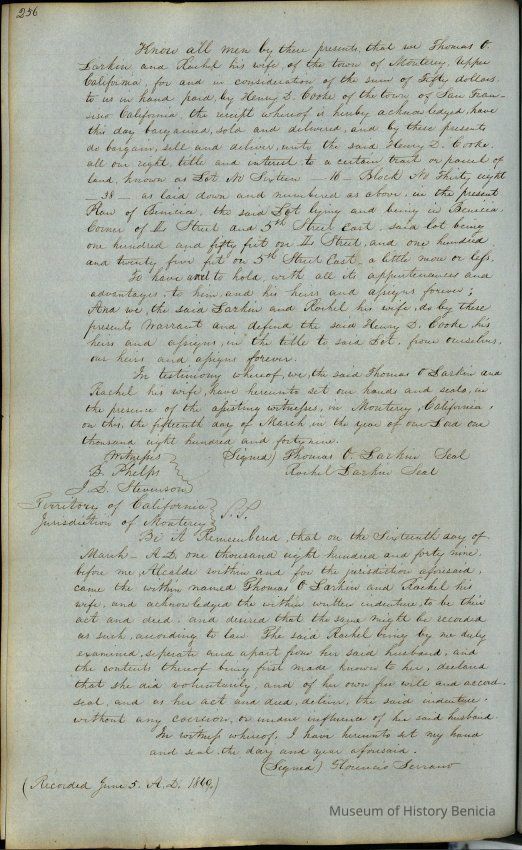 256
Know all men by these presents, that we Thomas O.
Larkin and Rachel his wife, of the town of Monterey, Upper
California, for and in consideration of the sum of Fifty dollars
to us in hand paid, by Henry D. Cooke of the town of San Fran-
cisco California, the receipt whereof is hereby acknowledged, have
this day bargained, sold and delivered, and by these presents
do bargain, sell and deliver, unto the said Henry D. Cooke,
all our right, title and interest, to a certain tract or parcel of
land, known as Lot No Sixteen — 16 — Block No Thirty eight
— 38 — as laid down and numbered as above, in the present
Plan of Benicia, the said Lot lying and being in Benicia
Corner of Street and 5th Street East, said lot being
one hundred and fifty feet on Street, and one hundred
and twenty five feet on 5th Street East, a little more or less.
To have and to hold, with all its appurtenances and
advantages, to him, and his heirs and assigns forever;
And we the said Larkin and Rachel his wife, do by these
presents Warrant and defend the said Henry D. Cooke, his
heirs and assigns, in the title to said Lot, from ourselves,
our heirs and assigns forever.
In testimony whereof, we, the said Thomas O Larkin and
Rachel his wife, have hereunto set our hands and seals, in
the presence of the witnesses, in Monterey, California,
on this, the fifteenth day of March, in the year of our Lord one
thousand eight hundred and forty nine.
Witnesses Signed) Thomas O. Larkin Seal
B. Phelps Rachel Larkin Seal
J. D. Stevenson
Territory of California
Jurisdiction of Monterey S.S.
Be it Remembered, that on the Sixteenth day of
March — A.D. one thousand eight hundred and forty nine
before me, Alcalde within and for the jurisdiction aforesaid,
came the within named Thomas O Larkin and Rachel his
wife, and acknowledged the within written indenture, to be their
act and deed, and desired that the same might be recorded
as such, according to law. The said Rachel being by me duly
examined, seperate and apart from her said husband, and
the contents thereof being first made known to her, declared
that she did voluntarily, and of her own free will and accord,
seal, and as her act and deed, deliver, the said indenture,
without any coercion, or undue influence of her said husband
In witness whereof, I have hereunto set my hand
and seal the day and year aforesaid.
(Signed) Florencio Serrano
(Recorded June 5. A.D. )
Museum of History Benicia